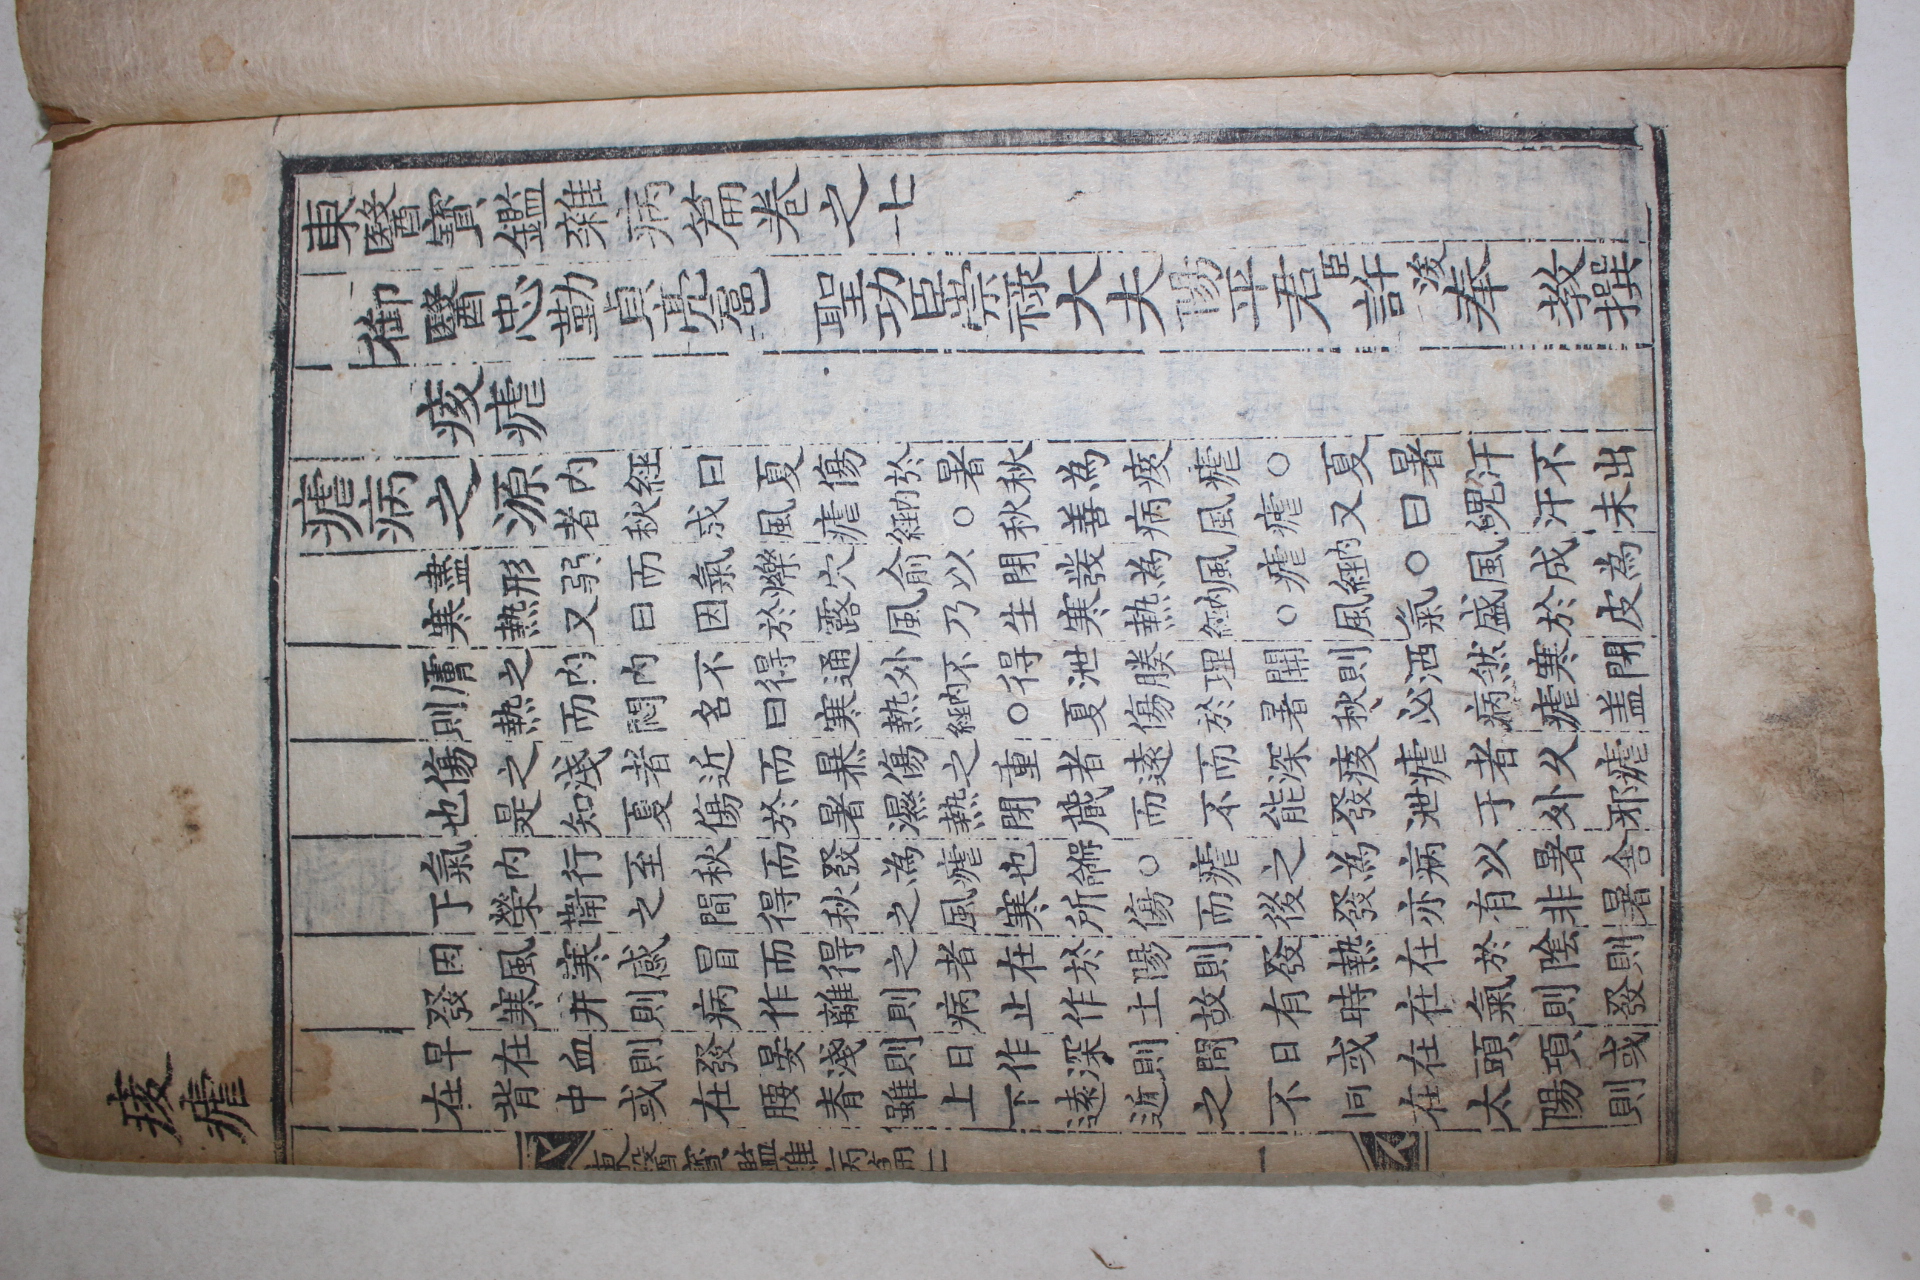 痎瘧
東醫寶鑑雜病篇卷之七
御醫忠勤貞亮扈 聖功臣崇祿大夫陽平君臣許浚奉 教撰
痎瘧
瘧病之源
內經曰夏傷於暑秋為痎瘧○夏暑汗不出
者秋成風瘧內經○秋善病風瘧又曰魄汗未
盡形弱而氣爍穴俞以閉發為風瘧內經○風成為
寒熱又曰因於露風乃生寒熱內經○風氣盛於皮
膚之內內不得通外不得泄腠理開則洒然寒閉
則熱而悶名曰寒熱內經○夏傷於暑秋必病瘧盖
傷之淺者近而暴傷之重者遠而深痎瘧者久瘧
也是知夏傷於暑濕熱閉藏而不能發泄于外邪
氣內行至秋而發為瘧也保命○瘧之為病以暑舍
丁榮衛之間得秋之風寒所傷而後發亦有非暑
因風寒感冒而得之者在於陽則發熱在於陰則
發寒并則病作離則病止作土故有時在氣則發
早在血則發晏淺則日作深則間日或在頭項或
在背中或在腰脊雖上下遠近之不同在太陽則
東醫寶鑑雜病篇七 一